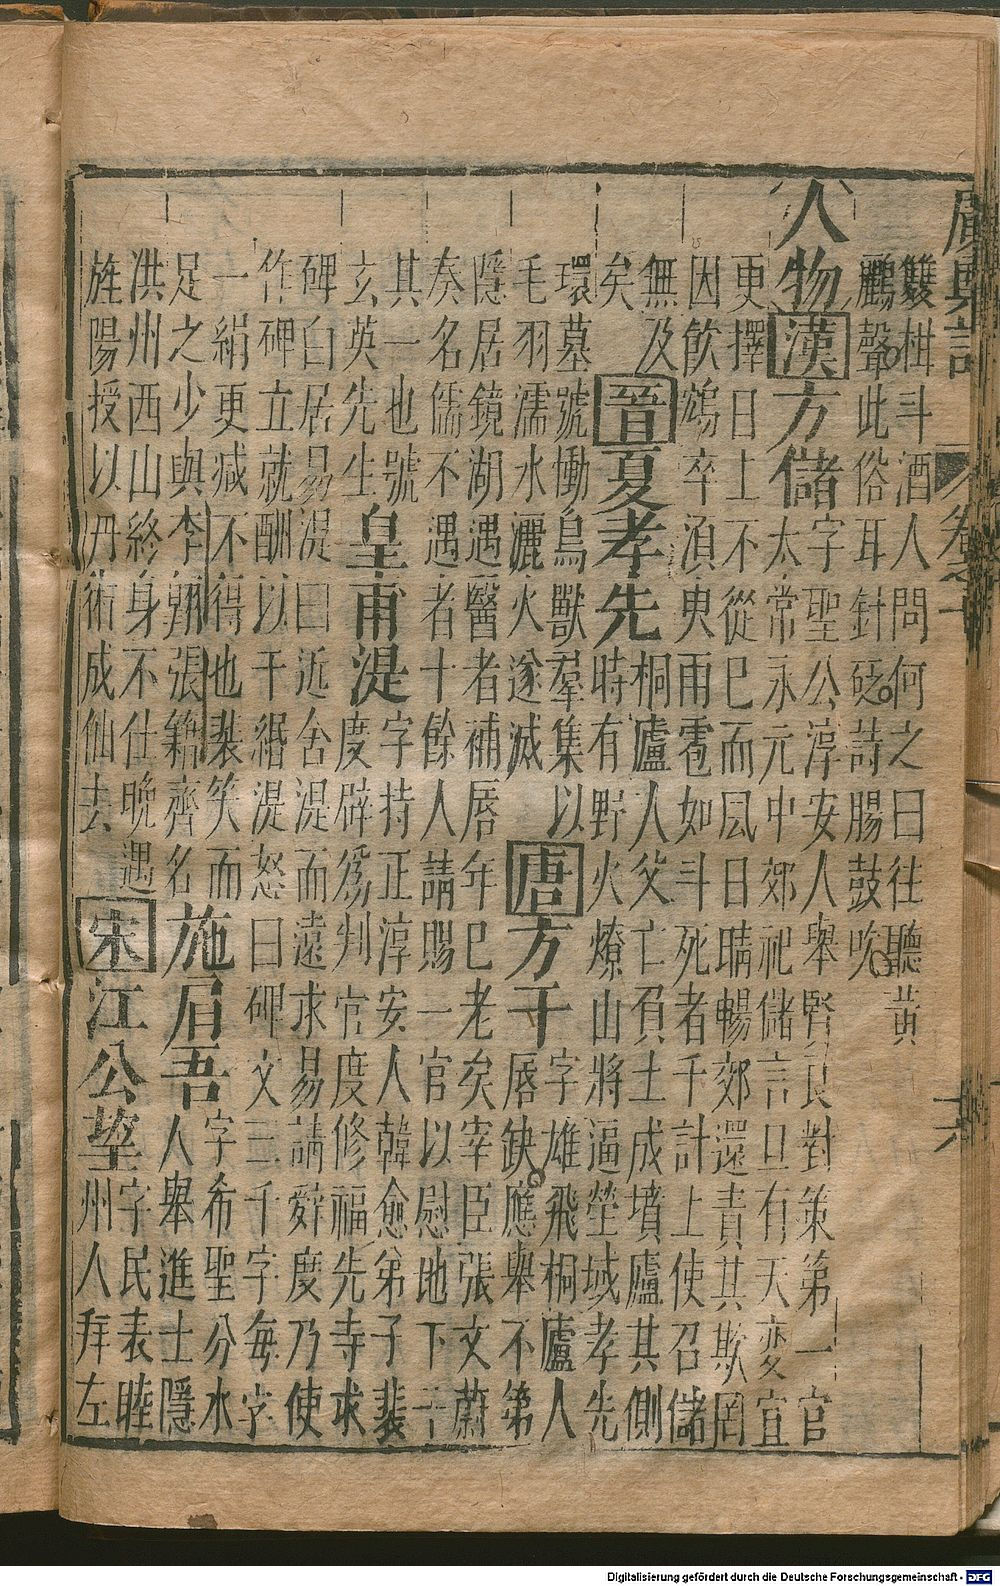 廣輿記
卷之十
十六
雙柑斗酒人問何之曰往聽黃
鸝聲此俗耳針砭詩腸鼓吹
人物 漢 方儲
字聖公淳安人舉賢良對策第一官
太常永元中郊祀儲言旦有天變宜
更擇日上不從已而風日晴暢郊還責其欺罔
因飲鴆卒湏臾雨雹如斗死者千計上使召儲
無及
矣
晉 夏孝先
桐廬人父亡負土成墳廬其側
時有野火燎山將逼塋域孝先
環墓號慟鳥獸羣集以
毛羽濡水灑火遂滅
唐 方干
字雄飛桐廬人
唇缺應舉不第
隱居鏡湖遇醫者補唇年已老矣宰臣張文蔚
奏名儒不遇者十餘人請賜一官以慰地下干
其一也號
玄英先生
皇甫湜
字持正淳安人韓愈弟子裴
度辟爲判官度修福先寺求
碑白居易湜曰近舍湜而遠求易請辭度乃使
作碑立就酬以千緡湜怒曰碑文三千字每字
一絹更減不得也裴笑而
足之少與李翱張籍齊名
施眉吾
字希聖分水
人舉進士隱
洪州西山終身不仕晚遇
旌陽授以丹術成仙去
宋 江公望
字民表睦
州人拜左
Digitalisierung gefördert durch die Deutsche Forschungsgemeinschaft - DFG